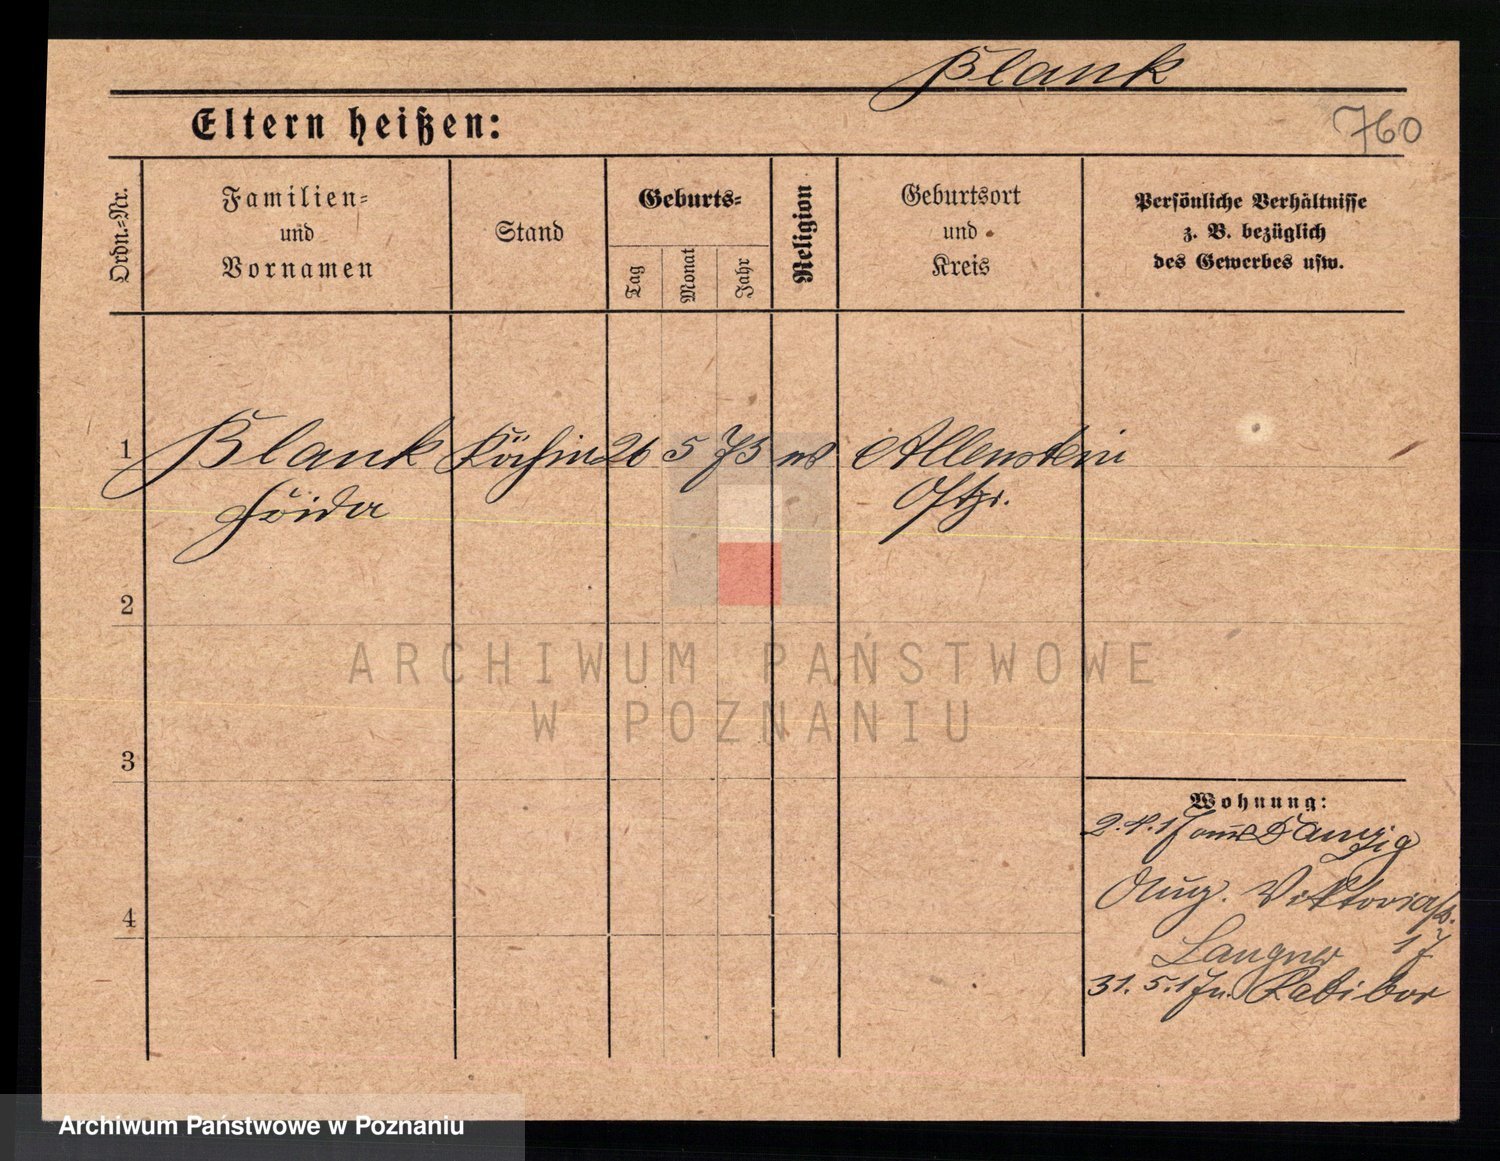 Blank
Eltern heißen:
760
Ordn.-Nr.
Familien- und Vornamen
Stand
Geburts-
Tag
Monat
Jahr
Religion
Geburtsort und Kreis
Persönliche Verhältnisse z. B. bezüglich des Gewerbes usw.
1 Blank Köchin 26 5 73 Allenstein
Ostpr.
2
ARCHIWUM PAŃSTWOWE
W POZNANIU
3
Wohnung:
2.4.17 aus Danzig
Aug. Viktoriastr.
4
Langner 17
31.5.17 n. Ratibor
Archiwum Państwowe w Poznaniu